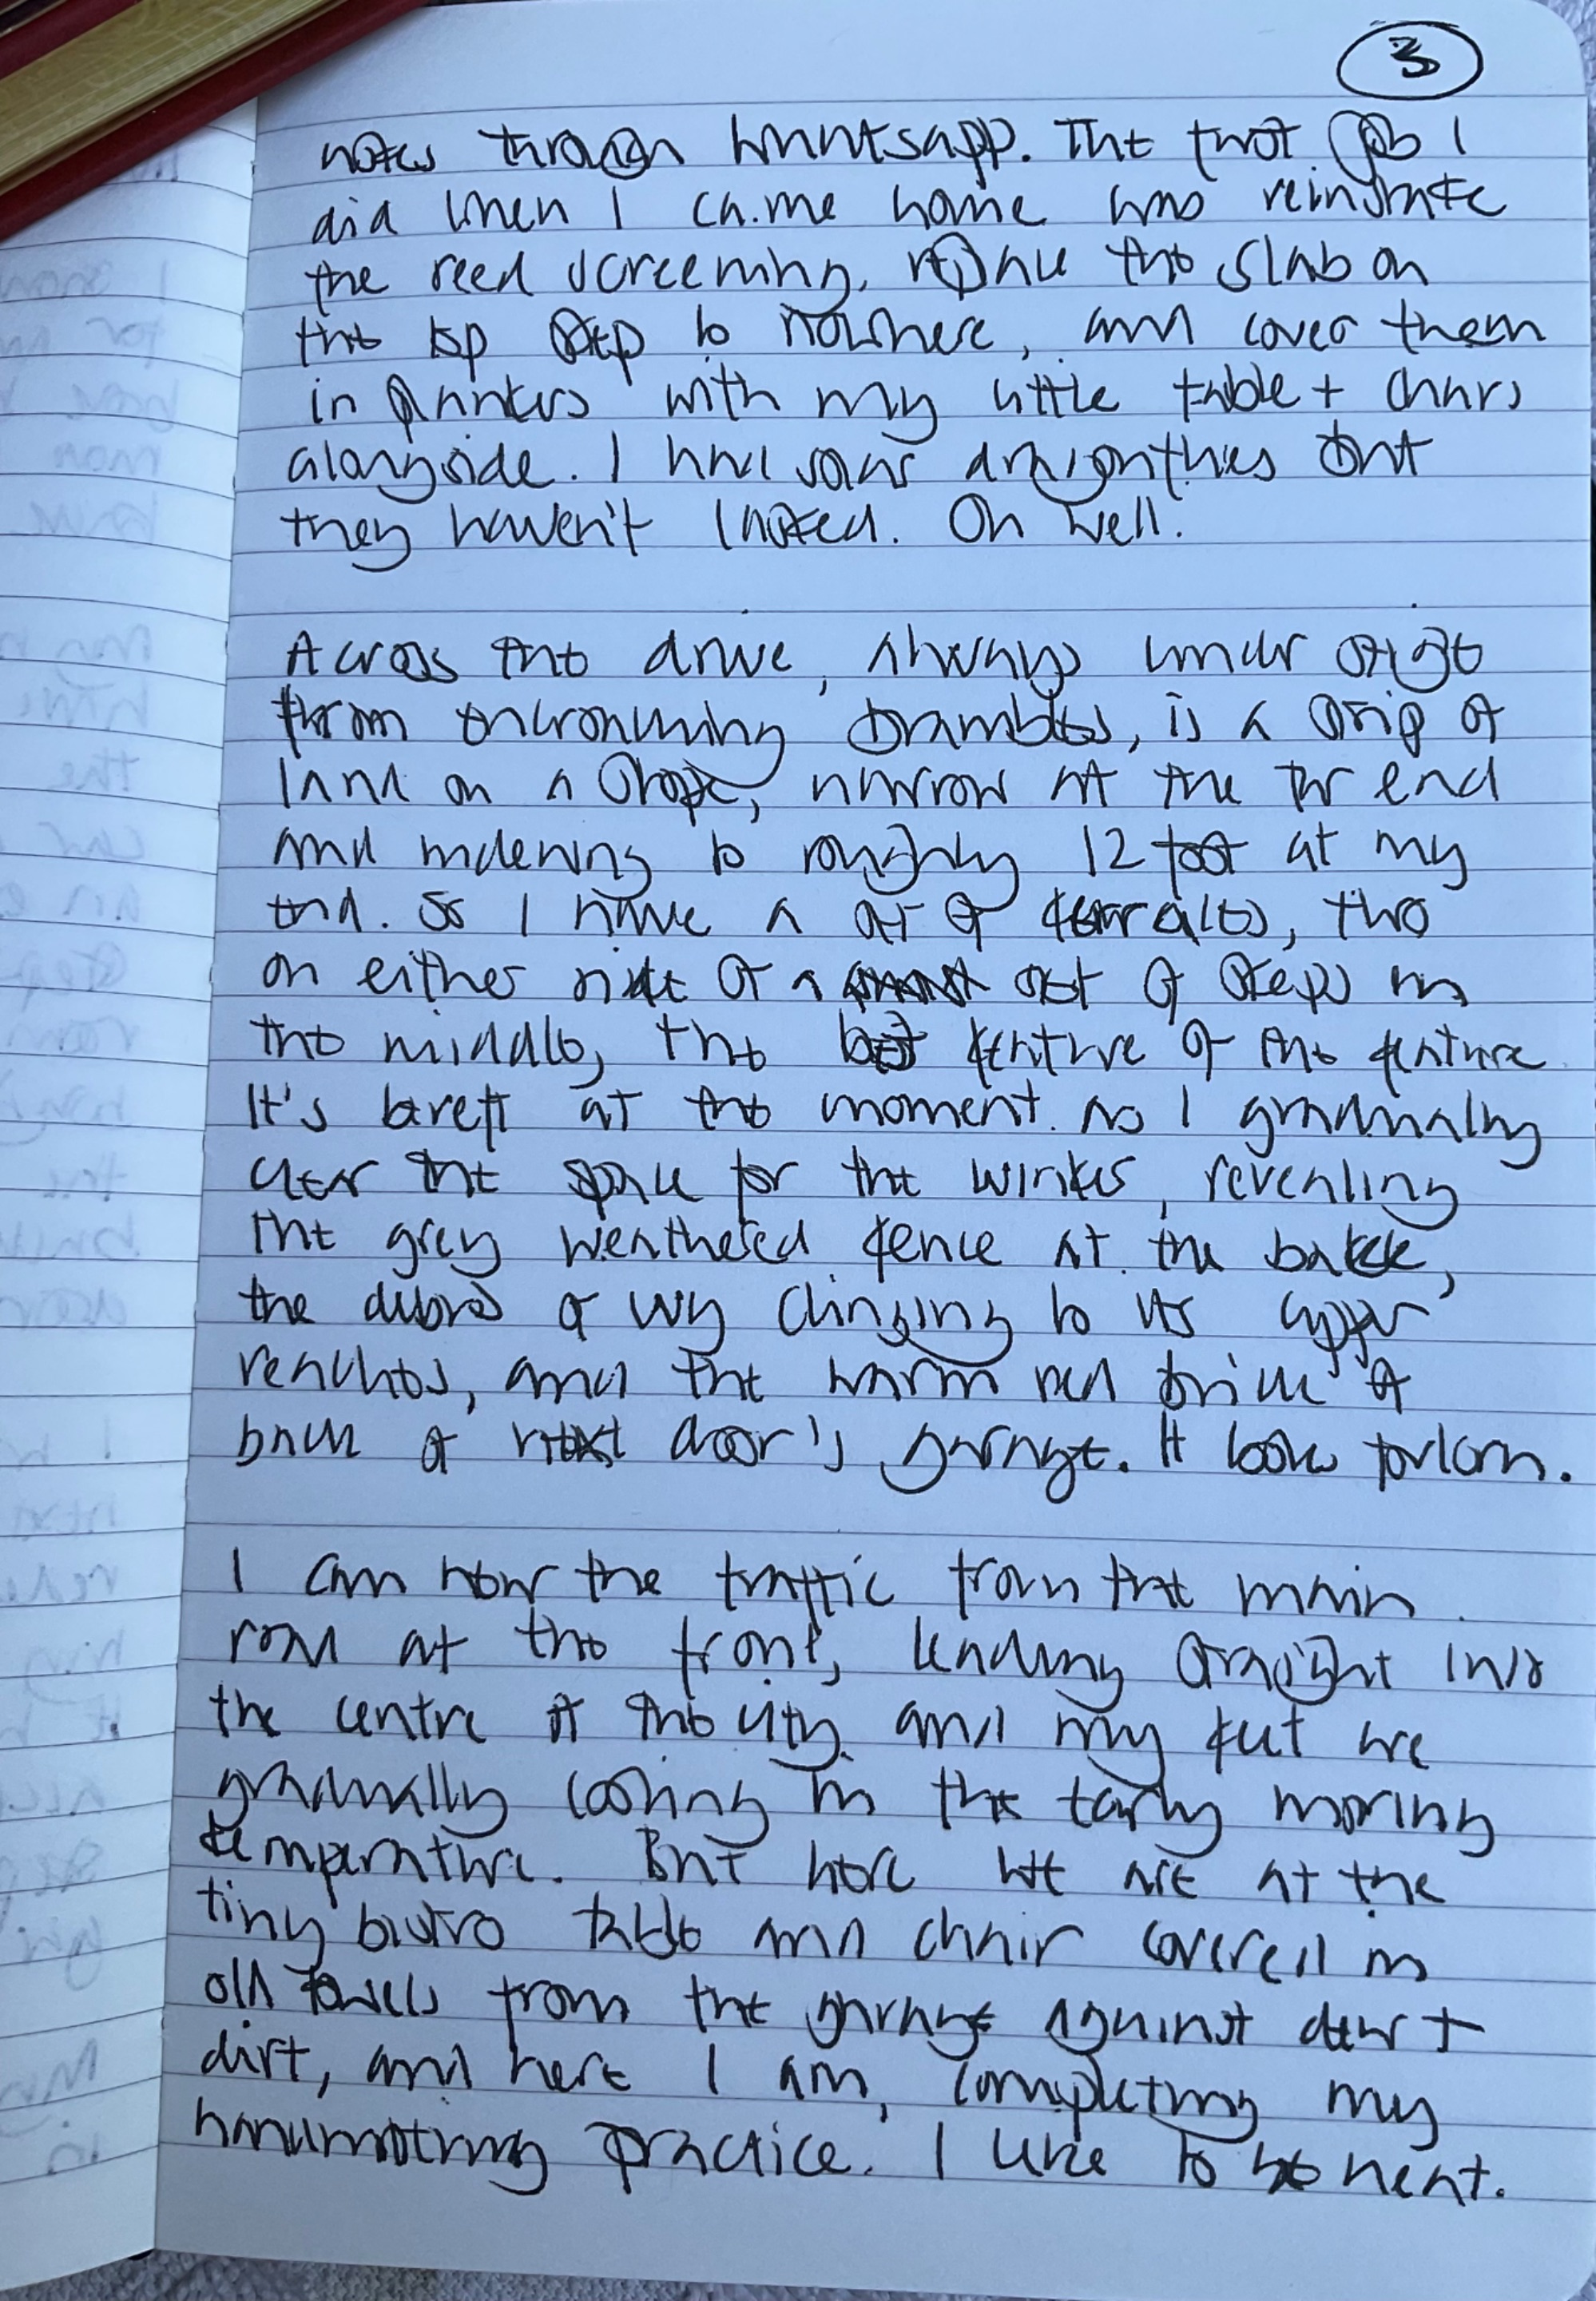 3
notes through Whatsapp. The first job I
did when I came home was reinstate
the reed screening, replace the slab on
the top step to nowhere, and cover them
in planters with my little table + chairs
alongside. I had some but
they haven't lasted. Oh well.
Across the drive, always under siege
from encroaching brambles, is a strip of
land on a slope, narrow at the far end
and widening to roughly 12 foot at my
end. So I have a set of terraces, two
on either side of a set of steps in
the middle, the best feature of the feature.
It's bereft at the moment as I gradually
clear the space for the winter, revealing
the grey weathered fence at the back,
the debris of ivy clinging to its upper
reaches, and the warm red brick of
brick of next door's garage. It looks forlorn.
I can hear the traffic from the main
road at the front, leading straight into
the centre of the city and my feet are
gradually cooling in the early morning
temperature. But here we are at the
tiny bistro table and chair covered in
old towels from the garage against dew +
dirt, and here I am, completing my
handwriting practice. I like to be neat.